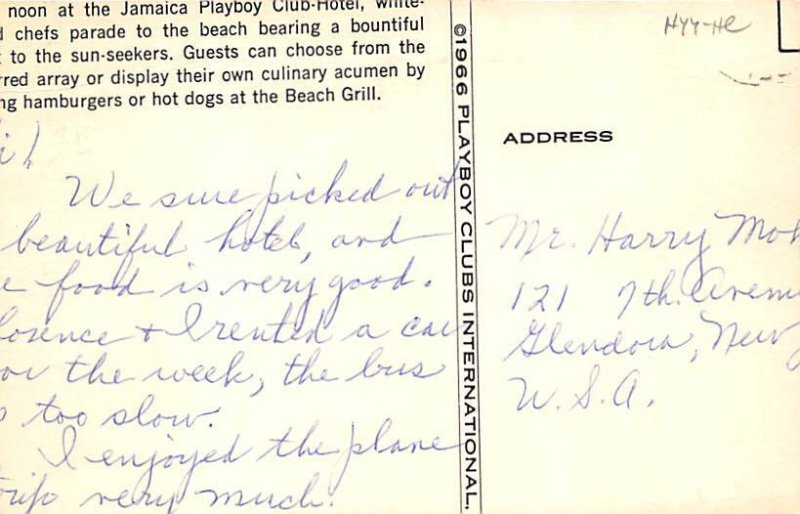 noon at the Jamaica Playboy Club-Hotel, white-
d chefs parade to the beach bearing a bountiful
t to the sun-seekers. Guests can choose from the
rred array or display their own culinary acumen by
ng hamburgers or hot dogs at the Beach Grill.
i!
We sure picked out
beautiful hotel, and
e food is very good.
lorence + I rented a car
or the week, the bus
too slow.
I enjoyed the plane
trip very much.
©1966 PLAYBOY CLUBS INTERNATIONAL,
HYY-HE
ADDRESS
Mr. Harry Moh
121 7th. Avenu
Glendora, New J
U.S.A.